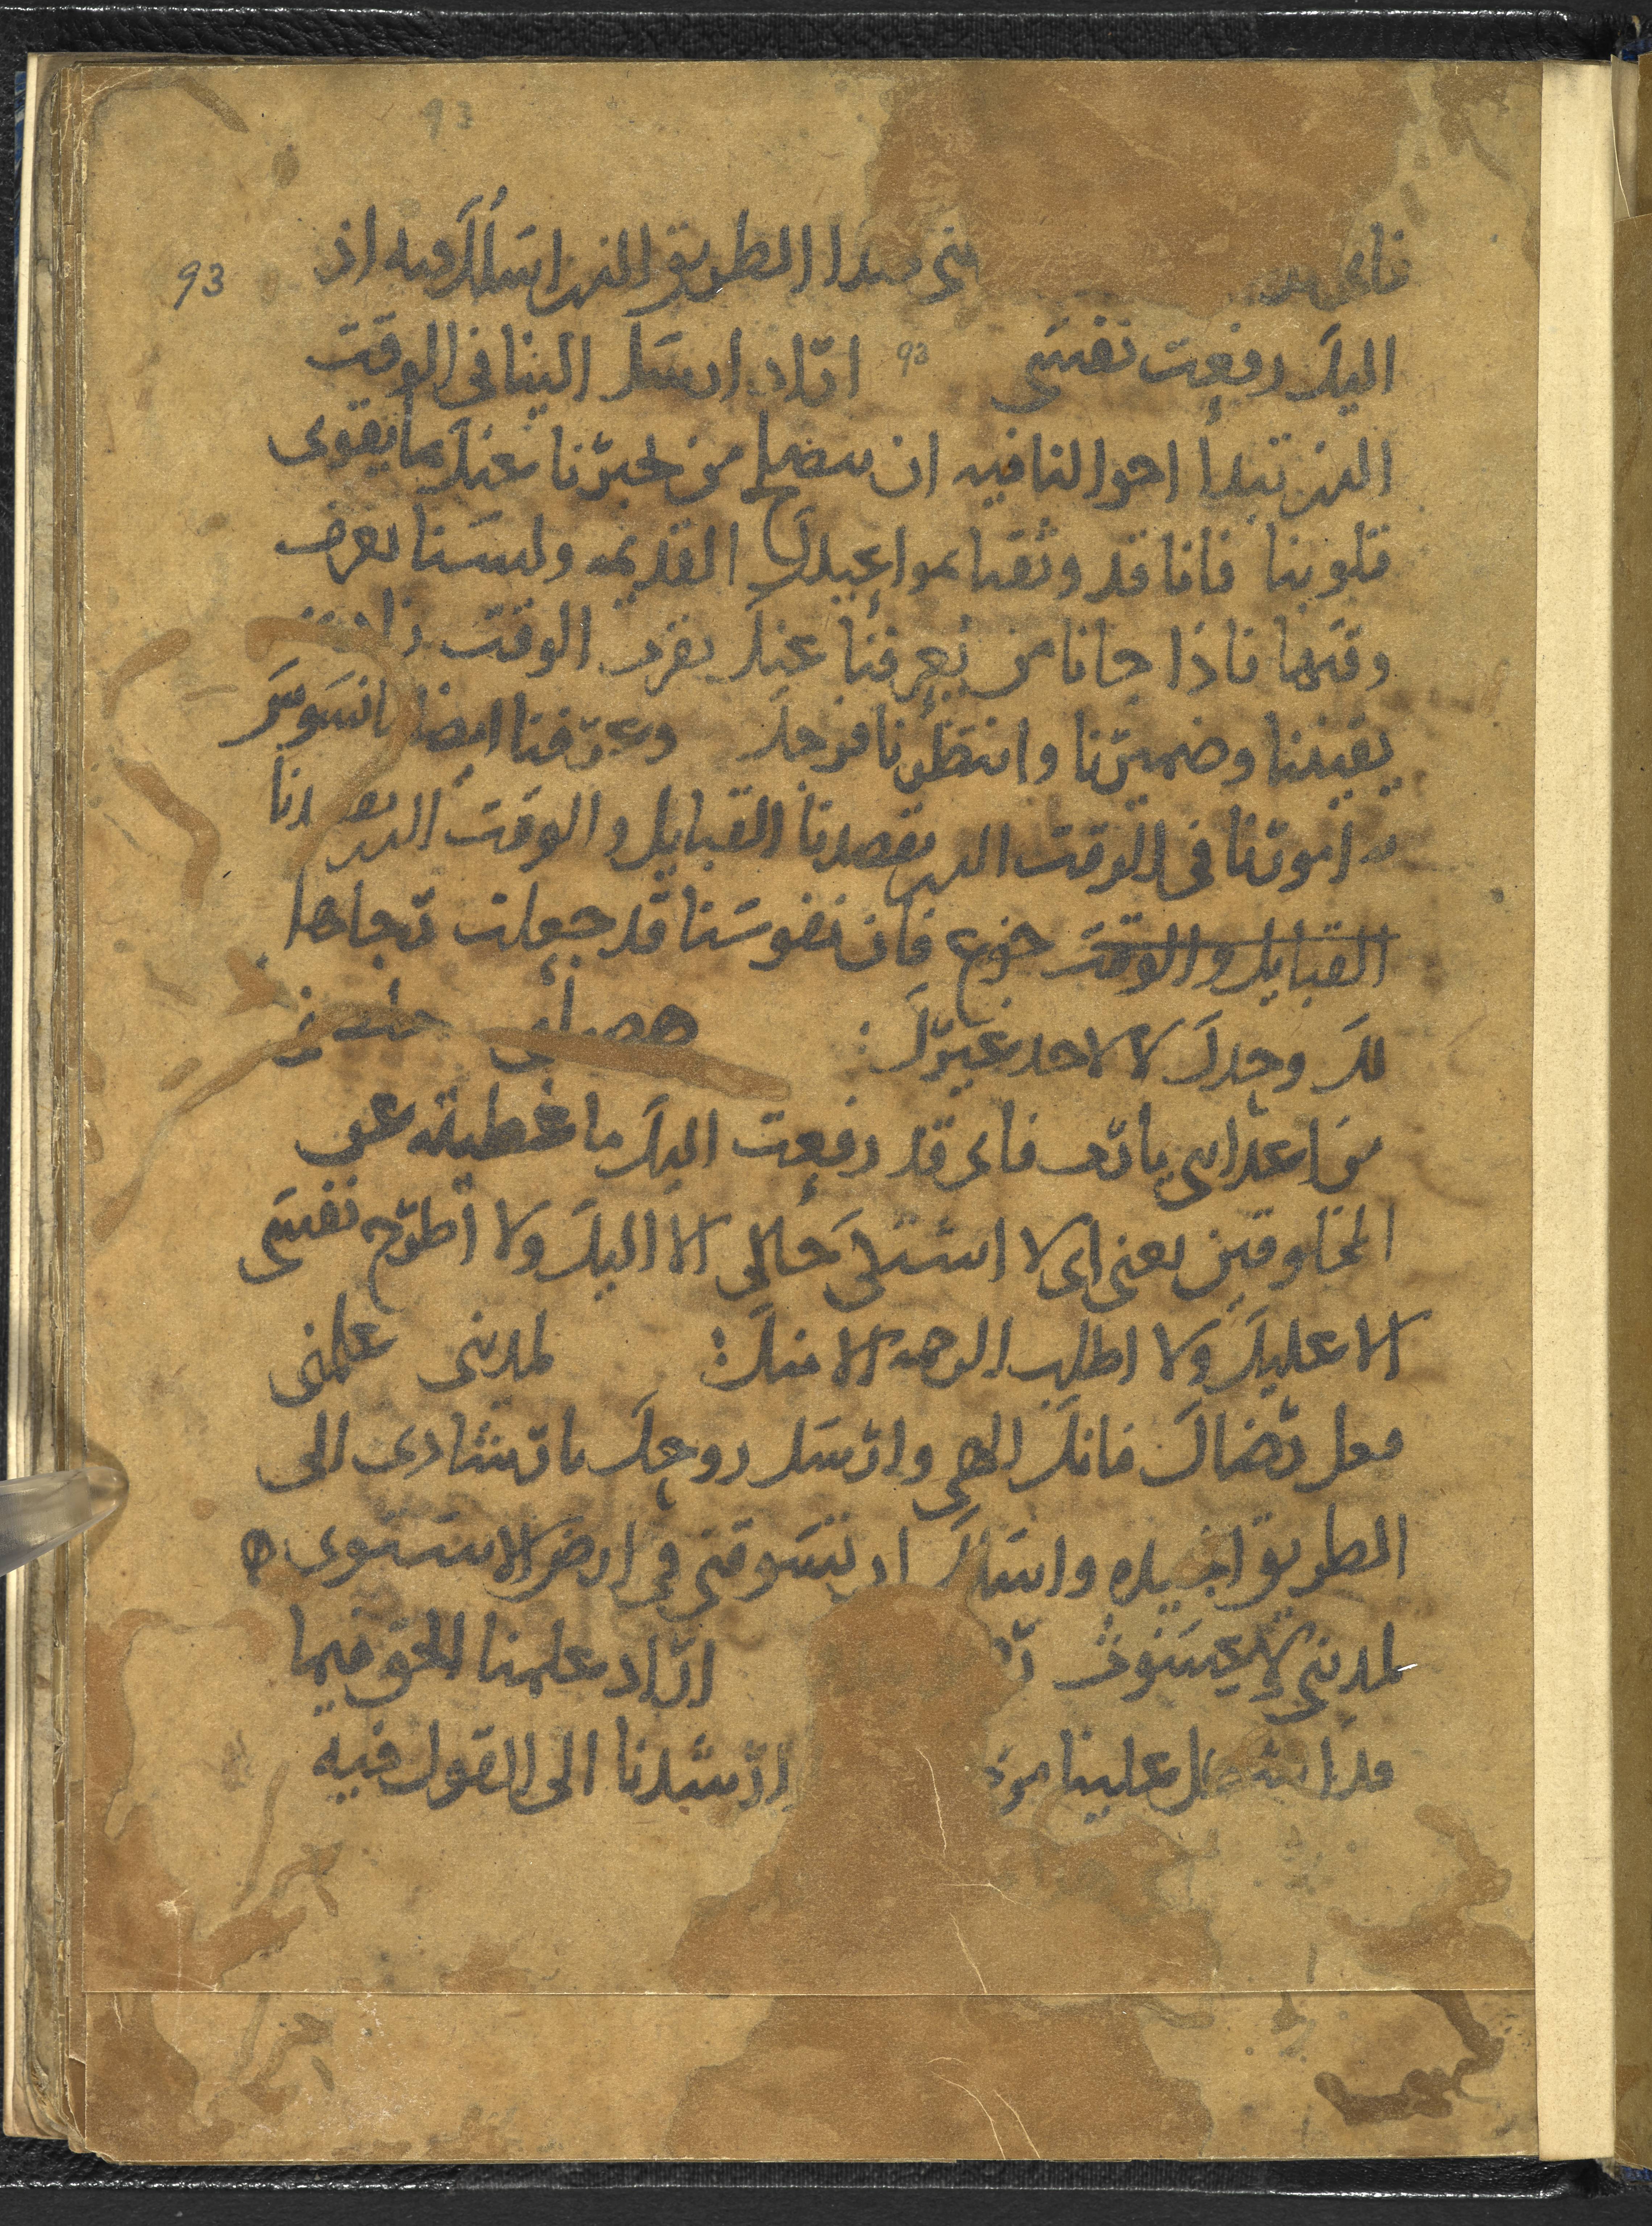 فانى هد نى هدا الطريق الذى اسالك فيه اذ
93
اليك رفعت نفسى 93 اراد ارسل الينا فى الوقت
الذى تبدا احوالنا فيه ان تنصلح من يخبرنا عنك بما يقوى
قلوبنا فانا قد وثقنا بمواعيدك القديمه ولسنا نعرف
وقتها فاذا جانا من يعرفنا عنك بقرب الوقت زاد
يقيننا وضميرنا وانتظرنا فرجك وعرفنا ايضا نسوس
امورنا فى الوقت الذى تقصدنا القبايل والوقت الذى نا
القبايل والوقت خزع فان نفوسنا قد جعلت رجاها
لك وحدك لا لاحد غيرك:
من اعداى يا رب فانى قد رفعت اليك ما غطيته عن
المخلوقين يعنى انى لا اشتكى حالى الا اليك ولا اطرح نفسى
الا عليك ولا اطلب الرحمه الا منك: لمدينى علمنى
فعل رضاك فانك الاهى وارسل روحك بارشادى الى
الطريق الجيده واسالك ان تسوقنى فى ارض الاستوى
لمدينى اراد علمنا الحق فيما
قد اشكل علينا ارشدنا الى القول فيه